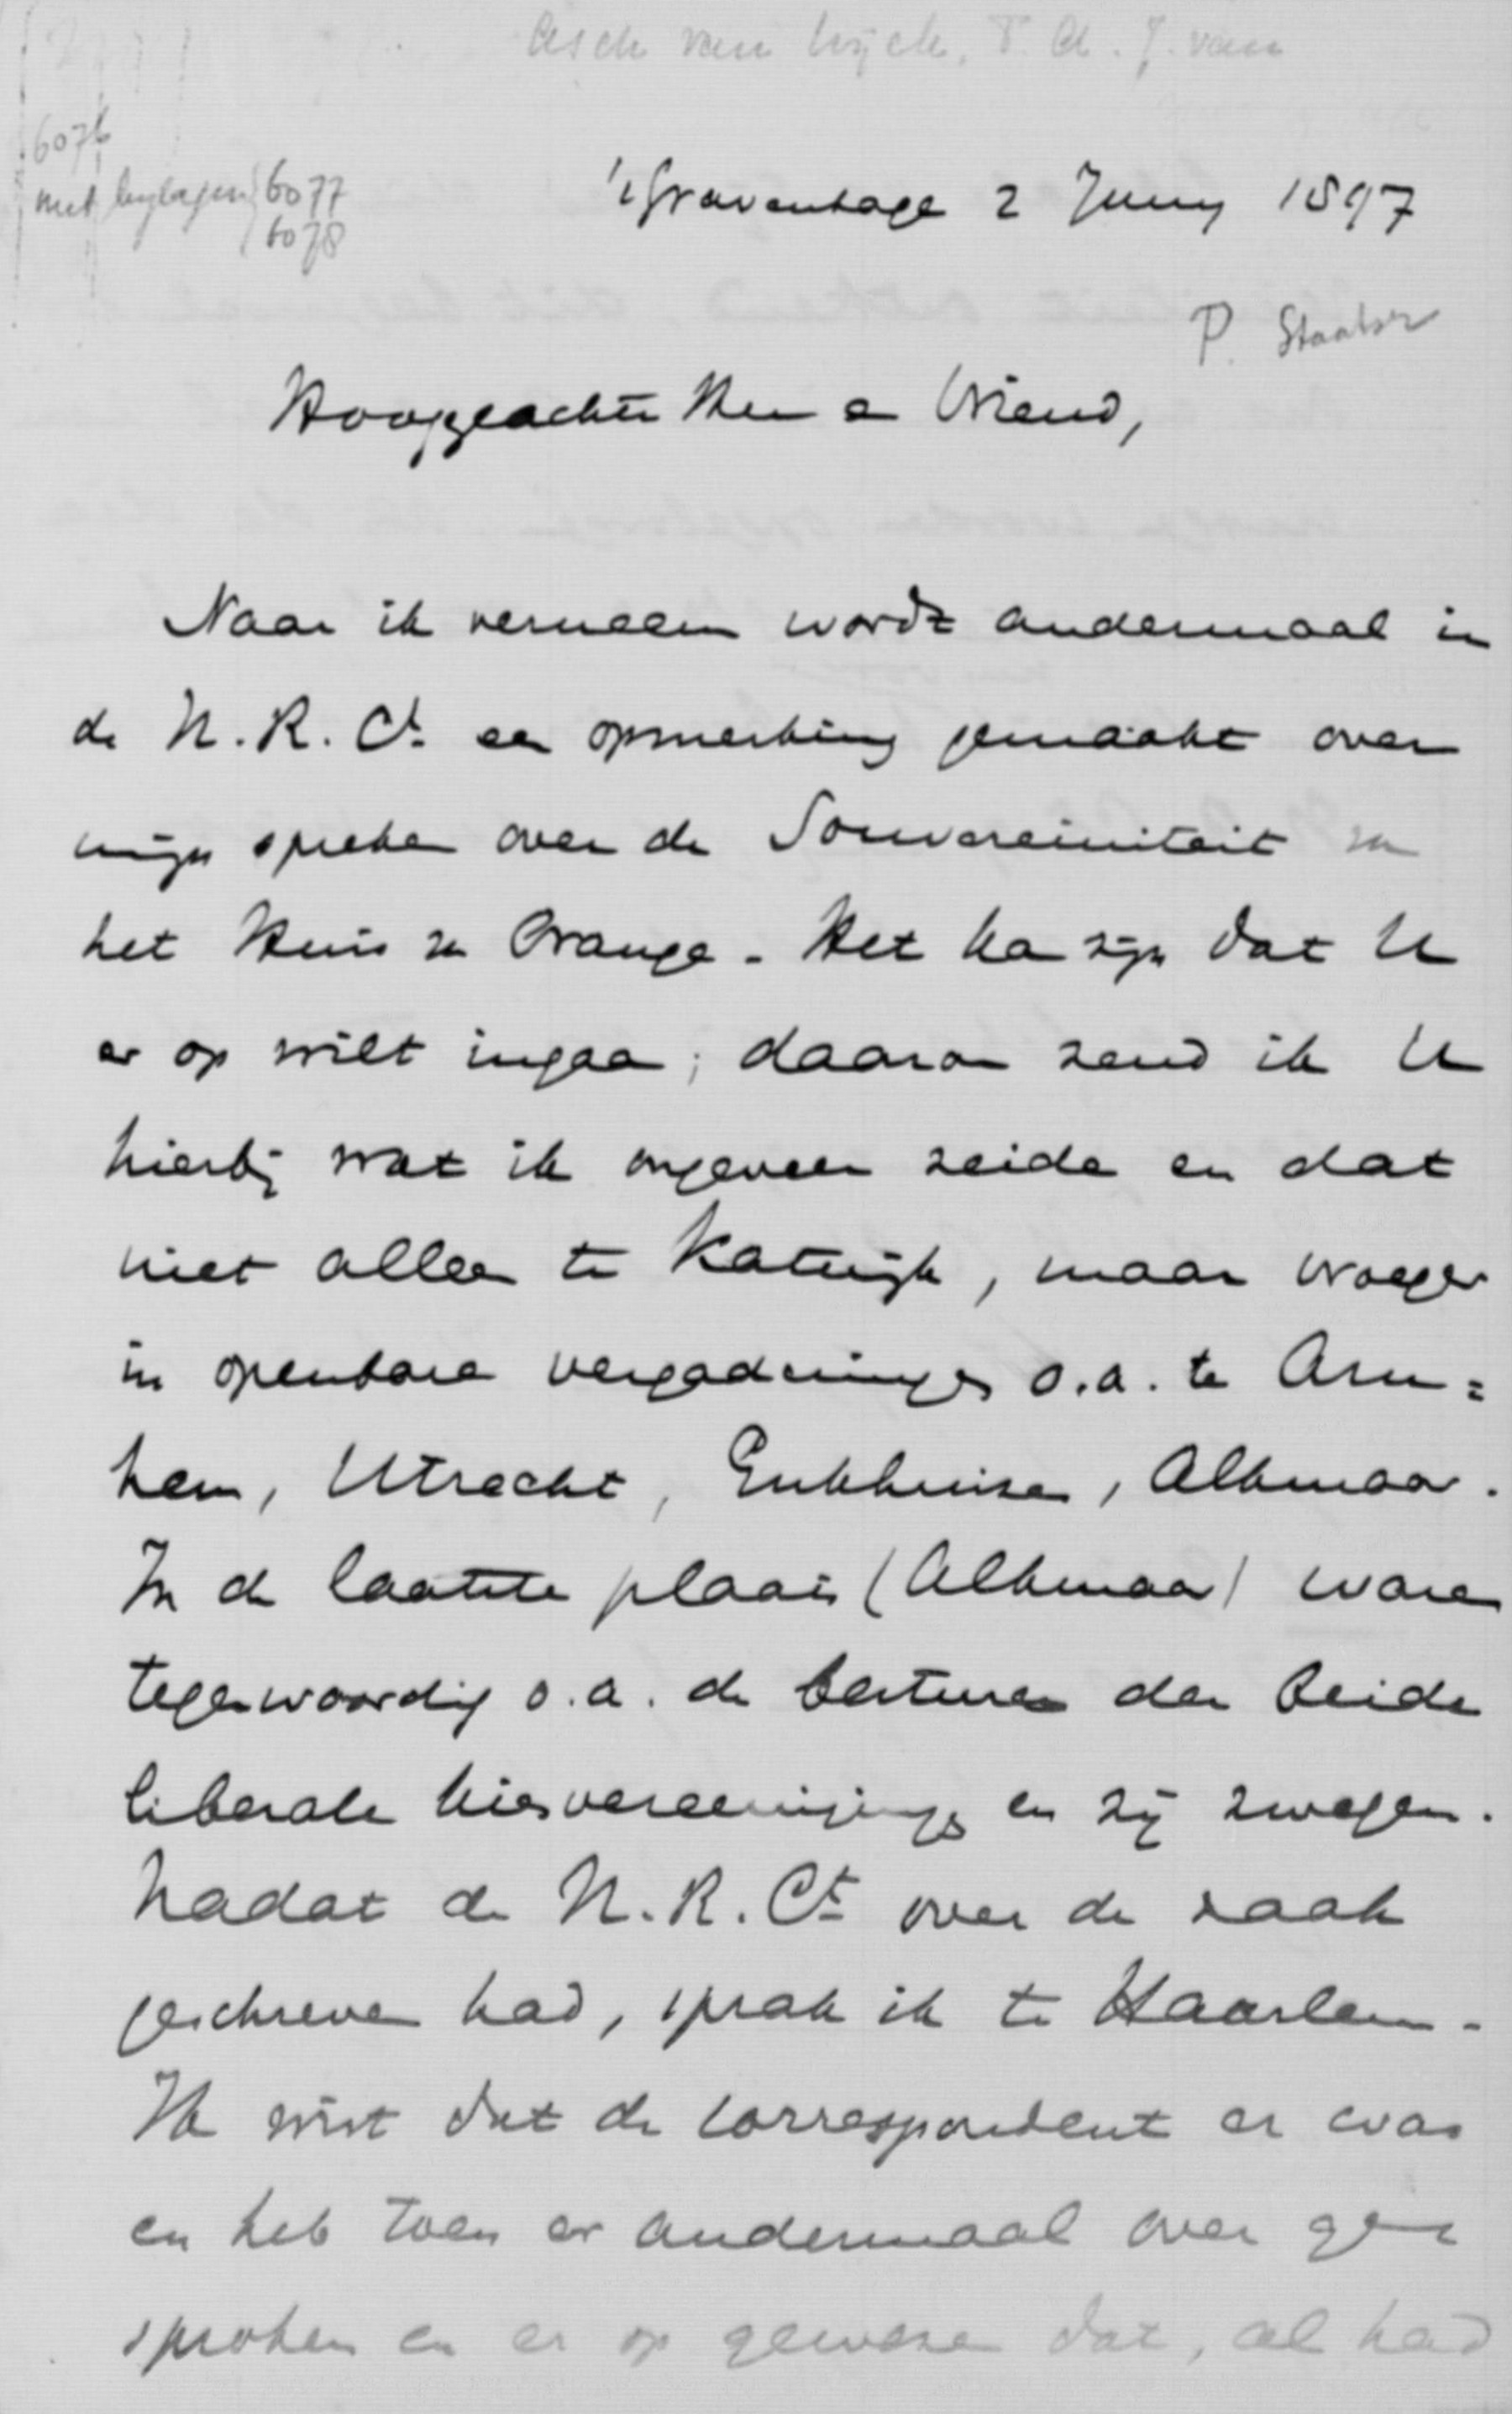 Asch van Wijck, T. A. J. van
6076
met bijlagen 6077
6078
'sGravenhage 2 Juny 1897
P. Staatsr
Hooggeachte Heer en Vriend,
Naar ik verneem wordt andermaal in
de N. R. Ct. een opmerking gemaakt over
mijn spreken over de Souvereiniteit van
het Huis van Oranje. Het kan zijn dat U
er op wilt ingaan; daarom zend ik U
hierbij wat ik ongeveer zeide en dat
niet alleen te Katwijk, maar vroeger
in openbare vergaderingen o.a. te Arn=
hem, Utrecht, Enkhuizen, Alkmaar.
In de laatste plaats (Alkmaar) waren
tegenwoordig o.a. de besturen der beide
liberale kiesvereenigingen en zij zwegen.
Nadat de N. R. Ct over de zaak
geschreven had, sprak ik te Haarlem.
Ik wist dat de correspondent er was
en heb toen er andermaal over ge
sproken en er op gewezen dat, al had